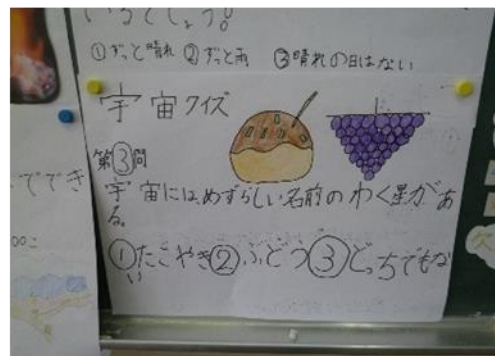 いるでしょう?
①ずっと晴れ ②ずっと雨 ③晴れの日はない
宇宙クイズ
第③問
宇宙には、めずらしい名前のわく星があ
る。
①たこやき②ぶどう③どっちでもな
い
でき